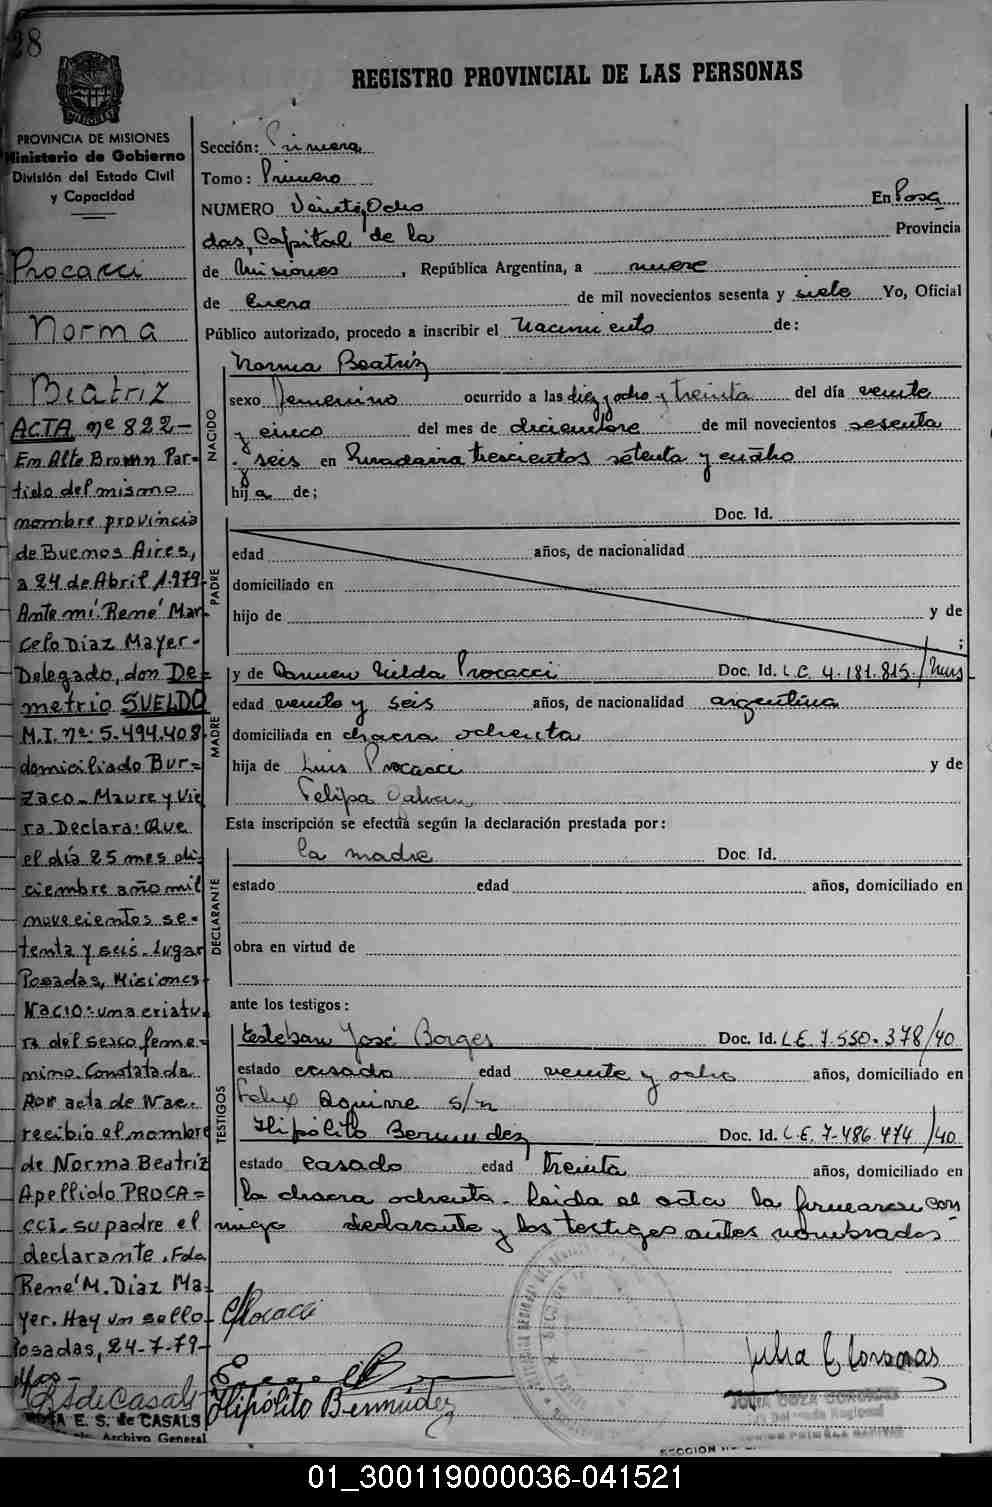 28
REGISTRO PROVINCIAL DE LAS PERSONAS
PROVINCIA DE MISIONES
Ministerio de Gobierno
División del Estado Civil
y Capacidad
Procacci
Norma
Beatriz
ACTA nº 822-
En Alte Brown Par-
tido del mismo
nombre provincia
de Buenos Aires,
a 24 de Abril 1.979
Ante mí: René Mar
celo Díaz Mayer-
Delegado, don De-
metrio SUELDO
M.I. nº 5.494.408
domiciliado Bur=
zaco- Maure y Vie
ra. Declara: Que
el día 25 mes di
ciembre año mil
novecientos se-
tenta y seis. Lugar
Posadas, Misiones
Nació: una criatu
ra del sexo feme-
nino. Constatada
por acta de Nac.
recibio el nombre
de Norma Beatriz
Apellido PROCA=
cci. su padre el
declarante. Fdo
René M. Díaz Ma
yer. Hay un sello
Posadas, 24-7-79-
A E. S. de CASALS
Archivo General
Sección: Primera
Tomo: Primero
NUMERO Veinte y Ocho En Posa
das, Capital de la Provincia
de Misiones, República Argentina, a nueve
de Enero de mil novecientos sesenta y siete Yo, Oficial
Público autorizado, procedo a inscribir el Nacimiento de:
NACIDO
Norma Beatriz
sexo femenino ocurrido a las diez y ocho y treinta del día veinte
y cinco del mes de diciembre de mil novecientos sesenta
y seis en Rivadavia trescientos setenta y cuatro
hija de;
PADRE
Doc. Id.
edad años, de nacionalidad
domiciliado en
hijo de y de
;
MADRE
y de Carmen Nilda Procacci Doc. Id. L.C. 4.181.815/Mnes
edad veinte y seis años, de nacionalidad argentina
domiciliada en chacra ochenta
hija de Luis Procacci y de
Felipa Galvan
Esta inscripción se efectúa según la declaración prestada por:
DECLARANTE
la madre Doc. Id.
estado edad años, domiciliado en
obra en virtud de
ante los testigos:
TESTIGOS
Esteban José Borges Doc. Id. L.E. 7.550.378/40
estado casado edad veinte y ocho años, domiciliado en
Felix Aguirre s/n
Hipólito Bermudez Doc. Id. L.E. 7.486.474/40
estado casado edad treinta años, domiciliado en
la chacra ochenta. Leida el acta la firmaron con
migo declarante y los testigos antes nombrados
CProcacci
Hipólito Bermudez
01_300119000036-041521